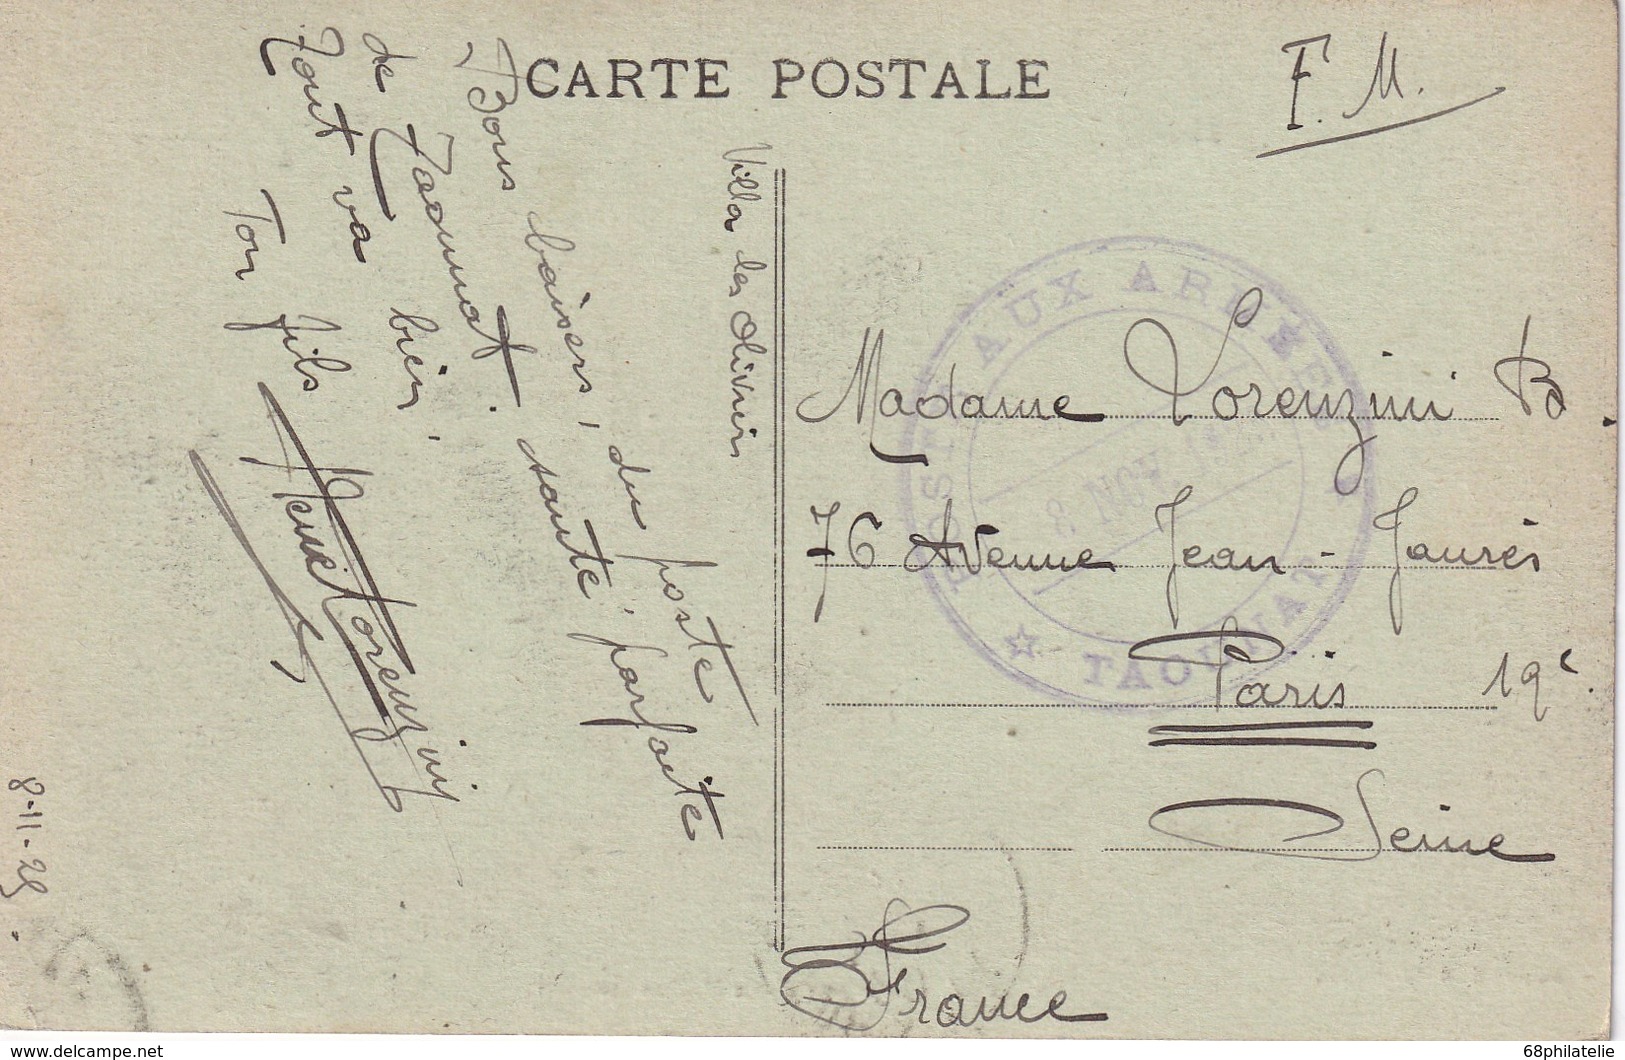 CARTE POSTALE
F.M.
Bons baisers, du poste
de Taounat. santé parfaite
Tout va bien,
Ton fils
Lorenzini
8-11-25.
Villa des Oliviers
Madame Lorenzini B.
76 Avenue Jean-Jaurès
Paris 19e.
Seine
France
AUX ARMÉES
8 NOV 19
TAOUNAT
68philatelie - delcampe.net